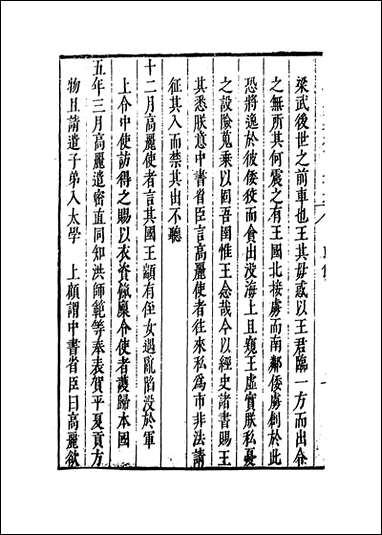 梁武後世之前車也王其毋惑以王君臨一方而出令
之無所其何震之有王國北接虜而南鄰倭虜創於此
恐將逸於彼倭狡而貪出没海上且窺王虛實朕私憂
之設險蒐乘以固吾圉惟王念哉今以經史諸書賜王
其悉朕意中書省臣言高麗使者往來私爲市非法請
征其入而禁其出不聽
十二月高麗使者言其國王顓有侄女遇亂陷没於軍
上令中使訪得之賜以衣資餼廩令使者護歸本國
五年三月高麗遣密直同知洪師範等奉表賀平夏貢方
物且請遣子弟入太學 上顧謂中書省臣曰高麗欲